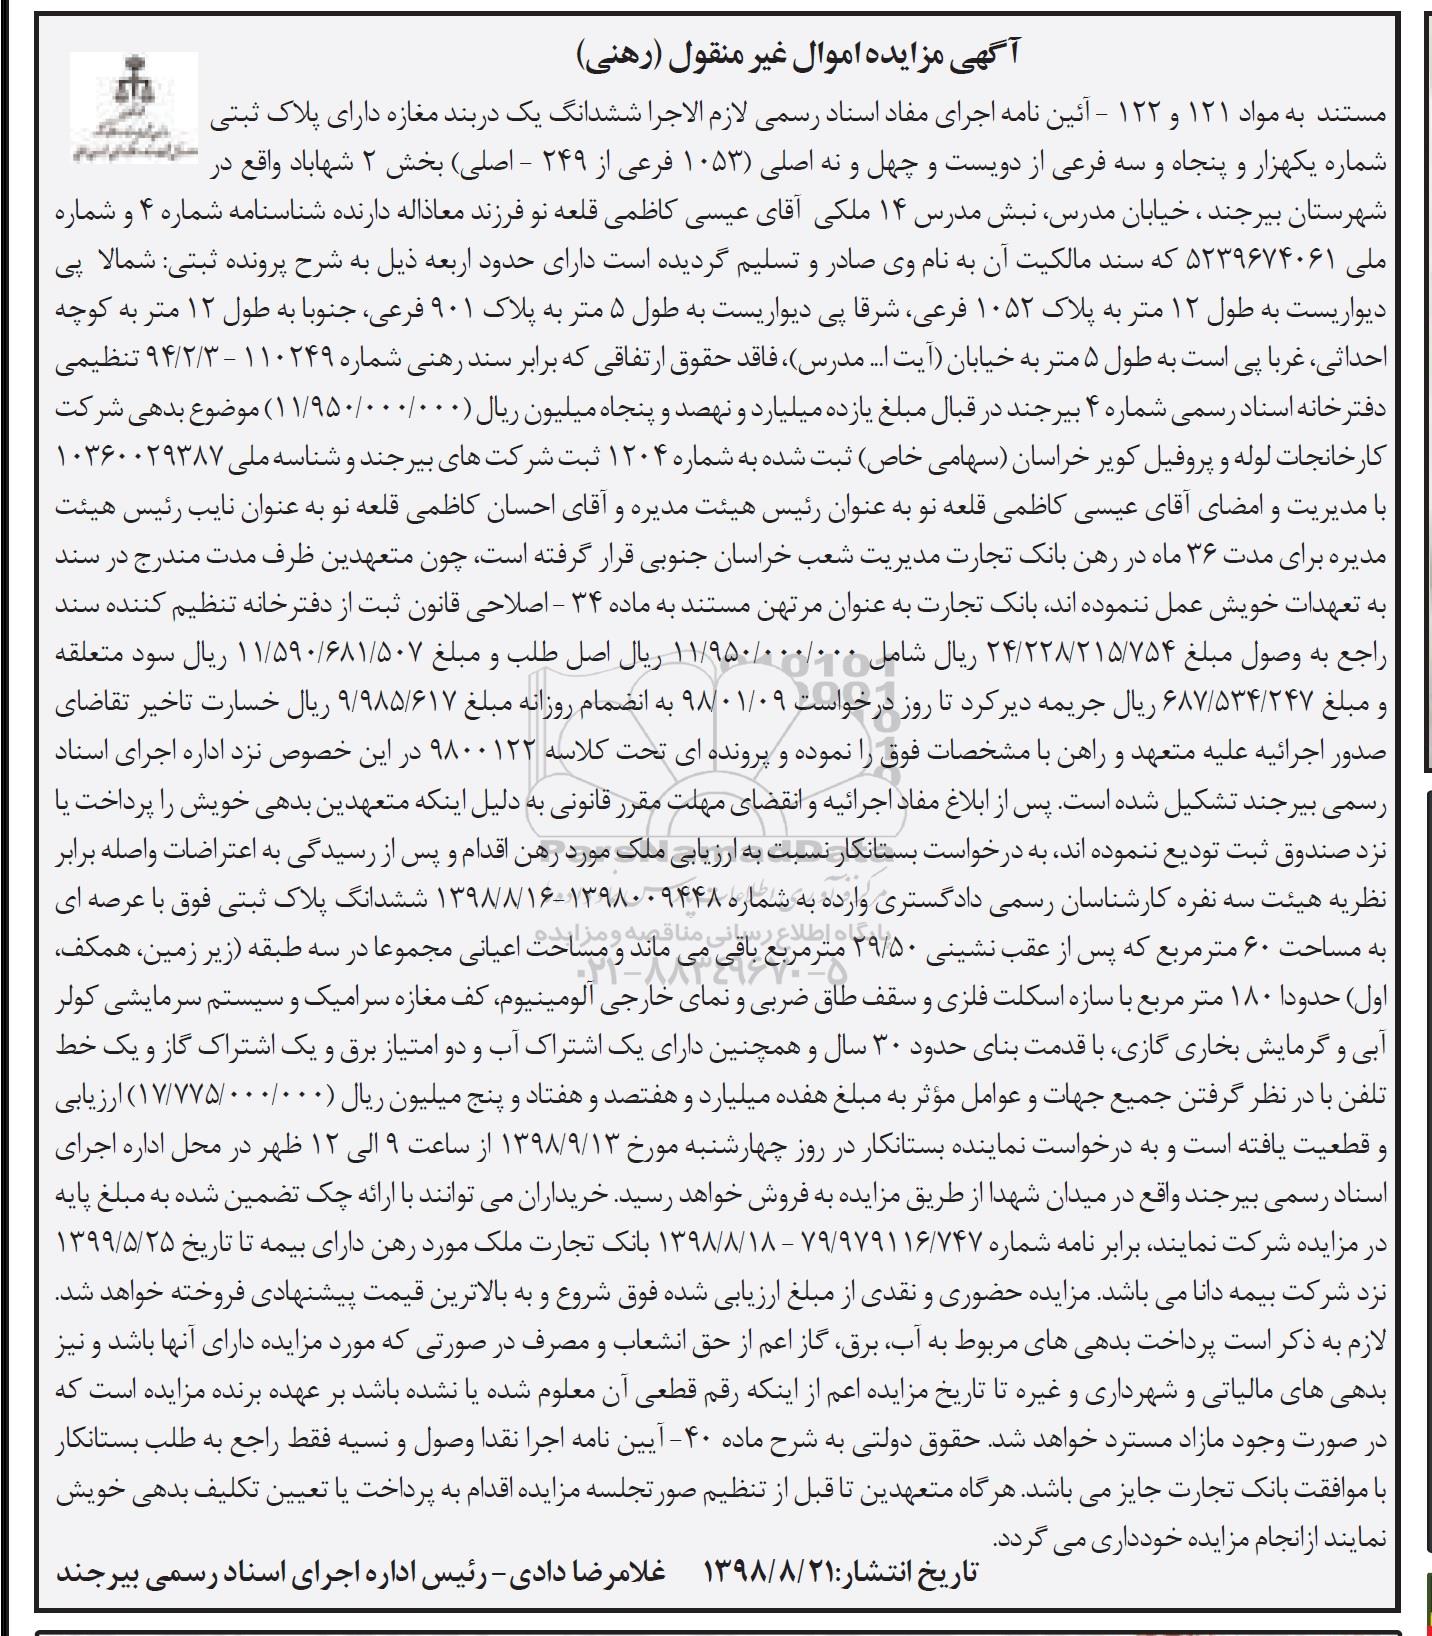 آگهی مزایده اموال غیر منقول (رهنی)
مستند به مواد ۱۲۱ و ۱۲۲ - آئین نامه اجرای مفاد اسناد رسمی لازم الاجرا ششدانگ یک دربند مغازه دارای پلاک ثبتی
شماره یکهزار و پنجاه و سه فرعی از دویست و چهل و نه اصلی (۱۰۵۳ فرعی از ۲۴۹ - اصلی) بخش ۲ شهاباد واقع در
شهرستان بیرجند ، خیابان مدرس، نبش مدرس ۱۴ ملکی آقای عیسی کاظمی قلعه نو فرزند معاذاله دارنده شناسنامه شماره ۴ و شماره
ملی ۵۲۳۹۶۷۴۰۶۱ که سند مالکیت آن به نام وی صادر و تسلیم گردیده است دارای حدود اربعه ذیل به شرح پرونده ثبتی: شمالا پی
دیواریست به طول ۱۲ متر به پلاک ۱۰۵۲ فرعی، شرقا پی دیواریست به طول ۵ متر به پلاک ۹۰۱ فرعی، جنوبا به طول ۱۲ متر به کوچه
احداثی، غربا پی است به طول ۵ متر به خیابان (آیت ا... مدرس)، فاقد حقوق ارتفاقی که برابر سند رهنی شماره ۱۱۰۲۴۹ - ۹۴/۲/۳ تنظیمی
دفترخانه اسناد رسمی شماره ۴ بیرجند در قبال مبلغ یازده میلیارد و نهصد و پنجاه میلیون ریال (۱۱/۹۵۰/۰۰۰/۰۰۰) موضوع بدهی شرکت
کارخانجات لوله و پروفیل کویر خراسان (سهامی خاص) ثبت شده به شماره ۱۲۰۴ ثبت شرکت های بیرجند و شناسه ملی ۱۰۳۶۰۰۲۹۳۸۷
با مدیریت و امضای آقای عیسی کاظمی قلعه نو به عنوان رئیس هیئت مدیره و آقای احسان کاظمی قلعه نو به عنوان نایب رئیس هیئت
مدیره برای مدت ۳۶ ماه در رهن بانک تجارت مدیریت شعب خراسان جنوبی قرار گرفته است، چون متعهدین ظرف مدت مندرج در سند
به تعهدات خویش عمل ننموده اند، بانک تجارت به عنوان مرتهن مستند به ماده ۳۴ - اصلاحی قانون ثبت از دفترخانه تنظیم کننده سند
راجع به وصول مبلغ ۲۴/۲۲۸/۲۱۵/۷۵۴ ریال شامل ۱۱/۹۵۰/۰۰۰/۰۰۰ ریال اصل طلب و مبلغ ۱۱/۵۹۰/۶۸۱/۵۰۷ ریال سود متعلقه
و مبلغ ۶۸۷/۵۳۴/۲۴۷ ریال جریمه دیرکرد تا روز درخواست ۹۸/۰۱/۰۹ به انضمام روزانه مبلغ ۹/۹۸۵/۶۱۷ ریال خسارت تاخیر تقاضای
صدور اجرائیه علیه متعهد و راهن با مشخصات فوق را نموده و پرونده ای تحت کلاسه ۹۸۰۰۱۲۲ در این خصوص نزد اداره اجرای اسناد
رسمی بیرجند تشکیل شده است. پس از ابلاغ مفاد اجرائیه و انقضای مهلت مقرر قانونی به دلیل اینکه متعهدین بدهی خویش را پرداخت یا
نزد صندوق ثبت تودیع ننموده اند، به درخواست بستانکار نسبت به ارزیابی ملک مورد رهن اقدام و پس از رسیدگی به اعتراضات واصله برابر
ParsNamadData
نظریه هیئت سه نفره کارشناسان رسمی دادگستری وارده به شماره ۱۳۹۸۰۰۹۴۴۸-۱۳۹۸/۸/۱۶ ششدانگ پلاک ثبتی فوق با عرصه ای
پایگاه اطلاع رسانی مناقصه و مزایده
به مساحت ۶۰ مترمربع که پس از عقب نشینی ۲۹/۵۰ مترمربع باقی می ماند و مساحت اعیانی مجموعا در سه طبقه (زیر زمین، همکف،
۰۲۱-۸۸۳۴۹۶۷۰-۵
اول) حدودا ۱۸۰ متر مربع با سازه اسکلت فلزی و سقف طاق ضربی و نمای خارجی آلومینیوم، کف مغازه سرامیک و سیستم سرمایشی کولر
آبی و گرمایش بخاری گازی، با قدمت بنای حدود ۳۰ سال و همچنین دارای یک اشتراک آب و دو امتیاز برق و یک اشتراک گاز و یک خط
تلفن با در نظر گرفتن جمیع جهات و عوامل مؤثر به مبلغ هفده میلیارد و هفتصد و هفتاد و پنج میلیون ریال (۱۷/۷۷۵/۰۰۰/۰۰۰) ارزیابی
و قطعیت یافته است و به درخواست نماینده بستانکار در روز چهارشنبه مورخ ۱۳۹۸/۹/۱۳ از ساعت ۹ الی ۱۲ ظهر در محل اداره اجرای
اسناد رسمی بیرجند واقع در میدان شهدا از طریق مزایده به فروش خواهد رسید. خریداران می توانند با ارائه چک تضمین شده به مبلغ پایه
در مزایده شرکت نمایند، برابر نامه شماره ۷۹/۹۷۹۱۱۶/۷۴۷ - ۱۳۹۸/۸/۱۸ بانک تجارت ملک مورد رهن دارای بیمه تا تاریخ ۱۳۹۹/۵/۲۵
نزد شرکت بیمه دانا می باشد. مزایده حضوری و نقدی از مبلغ ارزیابی شده فوق شروع و به بالاترین قیمت پیشنهادی فروخته خواهد شد.
لازم به ذکر است پرداخت بدهی های مربوط به آب، برق، گاز اعم از حق انشعاب و مصرف در صورتی که مورد مزایده دارای آنها باشد و نیز
بدهی های مالیاتی و شهرداری و غیره تا تاریخ مزایده اعم از اینکه رقم قطعی آن معلوم شده یا نشده باشد بر عهده برنده مزایده است که
در صورت وجود مازاد مسترد خواهد شد. حقوق دولتی به شرح ماده ۴۰- آیین نامه اجرا نقدا وصول و نسیه فقط راجع به طلب بستانکار
با موافقت بانک تجارت جایز می باشد. هرگاه متعهدین تا قبل از تنظیم صورتجلسه مزایده اقدام به پرداخت یا تعیین تکلیف بدهی خویش
نمایند ازانجام مزایده خودداری می گردد.
تاریخ انتشار:۱۳۹۸/۸/۲۱ غلامرضا دادی - رئیس اداره اجرای اسناد رسمی بیرجند